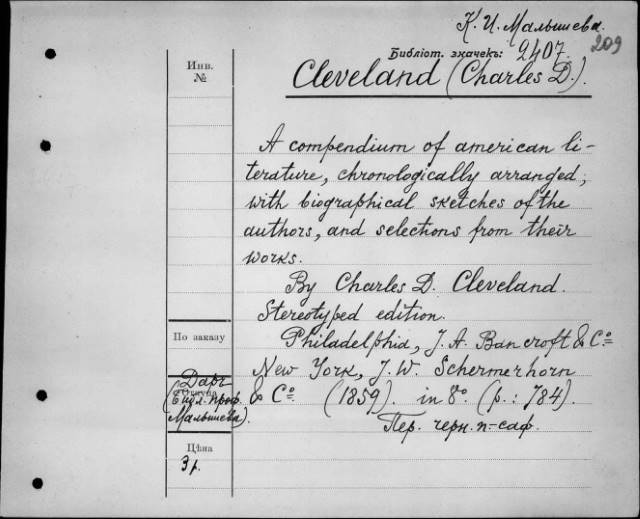 К. И. Малышева.
209
Библіот. значекъ: 2407.
Инв.
№
Cleveland (Charles D.).
A compendium of american li-
terature, chronologically arranged;
with biographical sketches of the
authors, and selections from their
works.
By Charles D. Cleveland.
Stereotyped edition.
По заказу
Philadelphia, J. A. Bancroft & Cº
New York, J. W. Schermerhorn
Даръ
(Библ. проф.
Малышева).
& Cº. (1859). in 8º. (p.: 784).
Пер. черн. п-саф.
Цѣна
3 р.